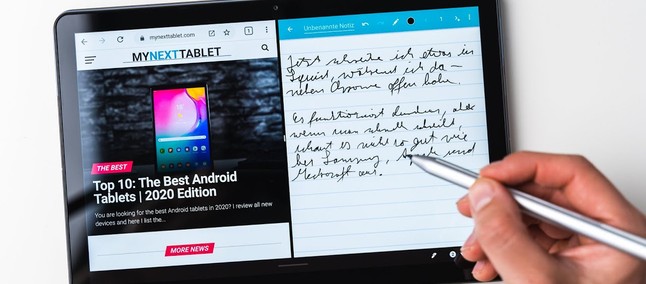 mynexttablet.com
MYNEXTTABLET
THE BEST
Top 10: The Best Android
Tablets | 2020 Edition
You are looking for the best Android tablets in 2020? I review all new
devices and here I list the...
MORE NEWS
Unbenannte Notiz
Jetzt schreibe ich etwas in
Squid, während ich da-
neben Chrome offen habe.
Es funktioniert durchaus, aber
wenn man schnell schreibt,
schaut es nicht so gut wie
bei Samsung, Apple und
Microsoft aus.